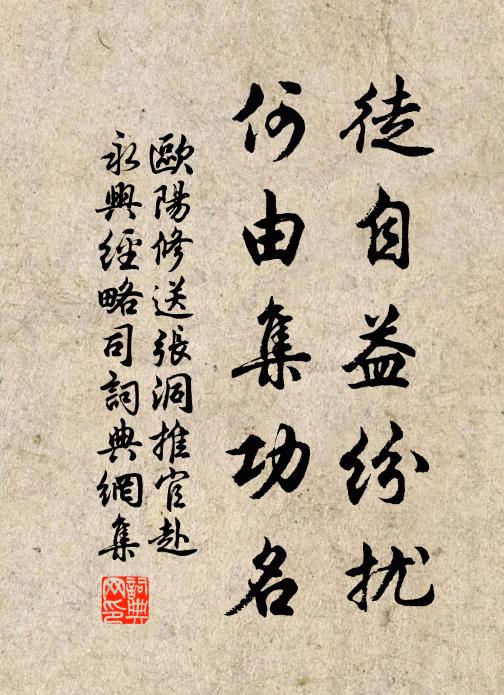 徒自益紛扰
何由集功名
歐陽修送張洞推官赴
永興經略司詞典網集
詞典网印